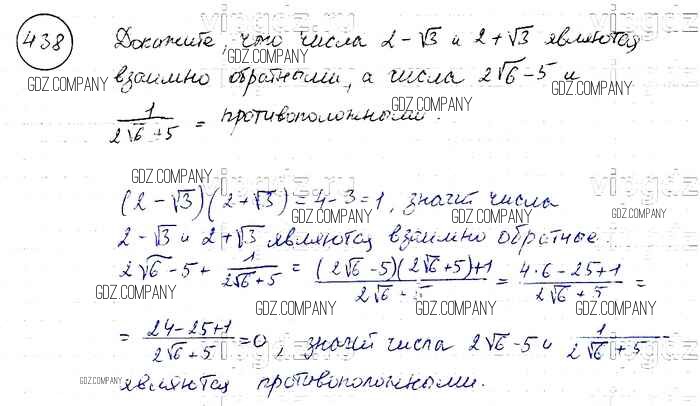 438 Докажите, что числа 2-√3 и 2+√3 являются
взаимно обратными, а числа 2√6-5 и
1/(2√6+5) = противоположными.
(2-√3)(2+√3)=4-3=1, значит числа
2-√3 и 2+√3 являются взаимно обратные.
2√6-5+ 1/(2√6+5) = ((2√6-5)(2√6+5)+1)/(2√6+5) = (4·6-25+1)/(2√6+5) =
= (24-25+1)/(2√6+5) =0, значит числа 2√6-5 и 1/(2√6+5)
являются противоположными.
GDZ.COMPANY
GDZ.COMPANY
GDZ.COMPANY
GDZ.COMPANY
GDZ.COMPANY
GDZ.COMPANY
GDZ.COMPANY
GDZ.COMPANY
GDZ.COMPANY
GDZ.COMPANY
GDZ.COMPANY
GDZ.COMPANY
GDZ.COMPANY
GDZ.COMPANY